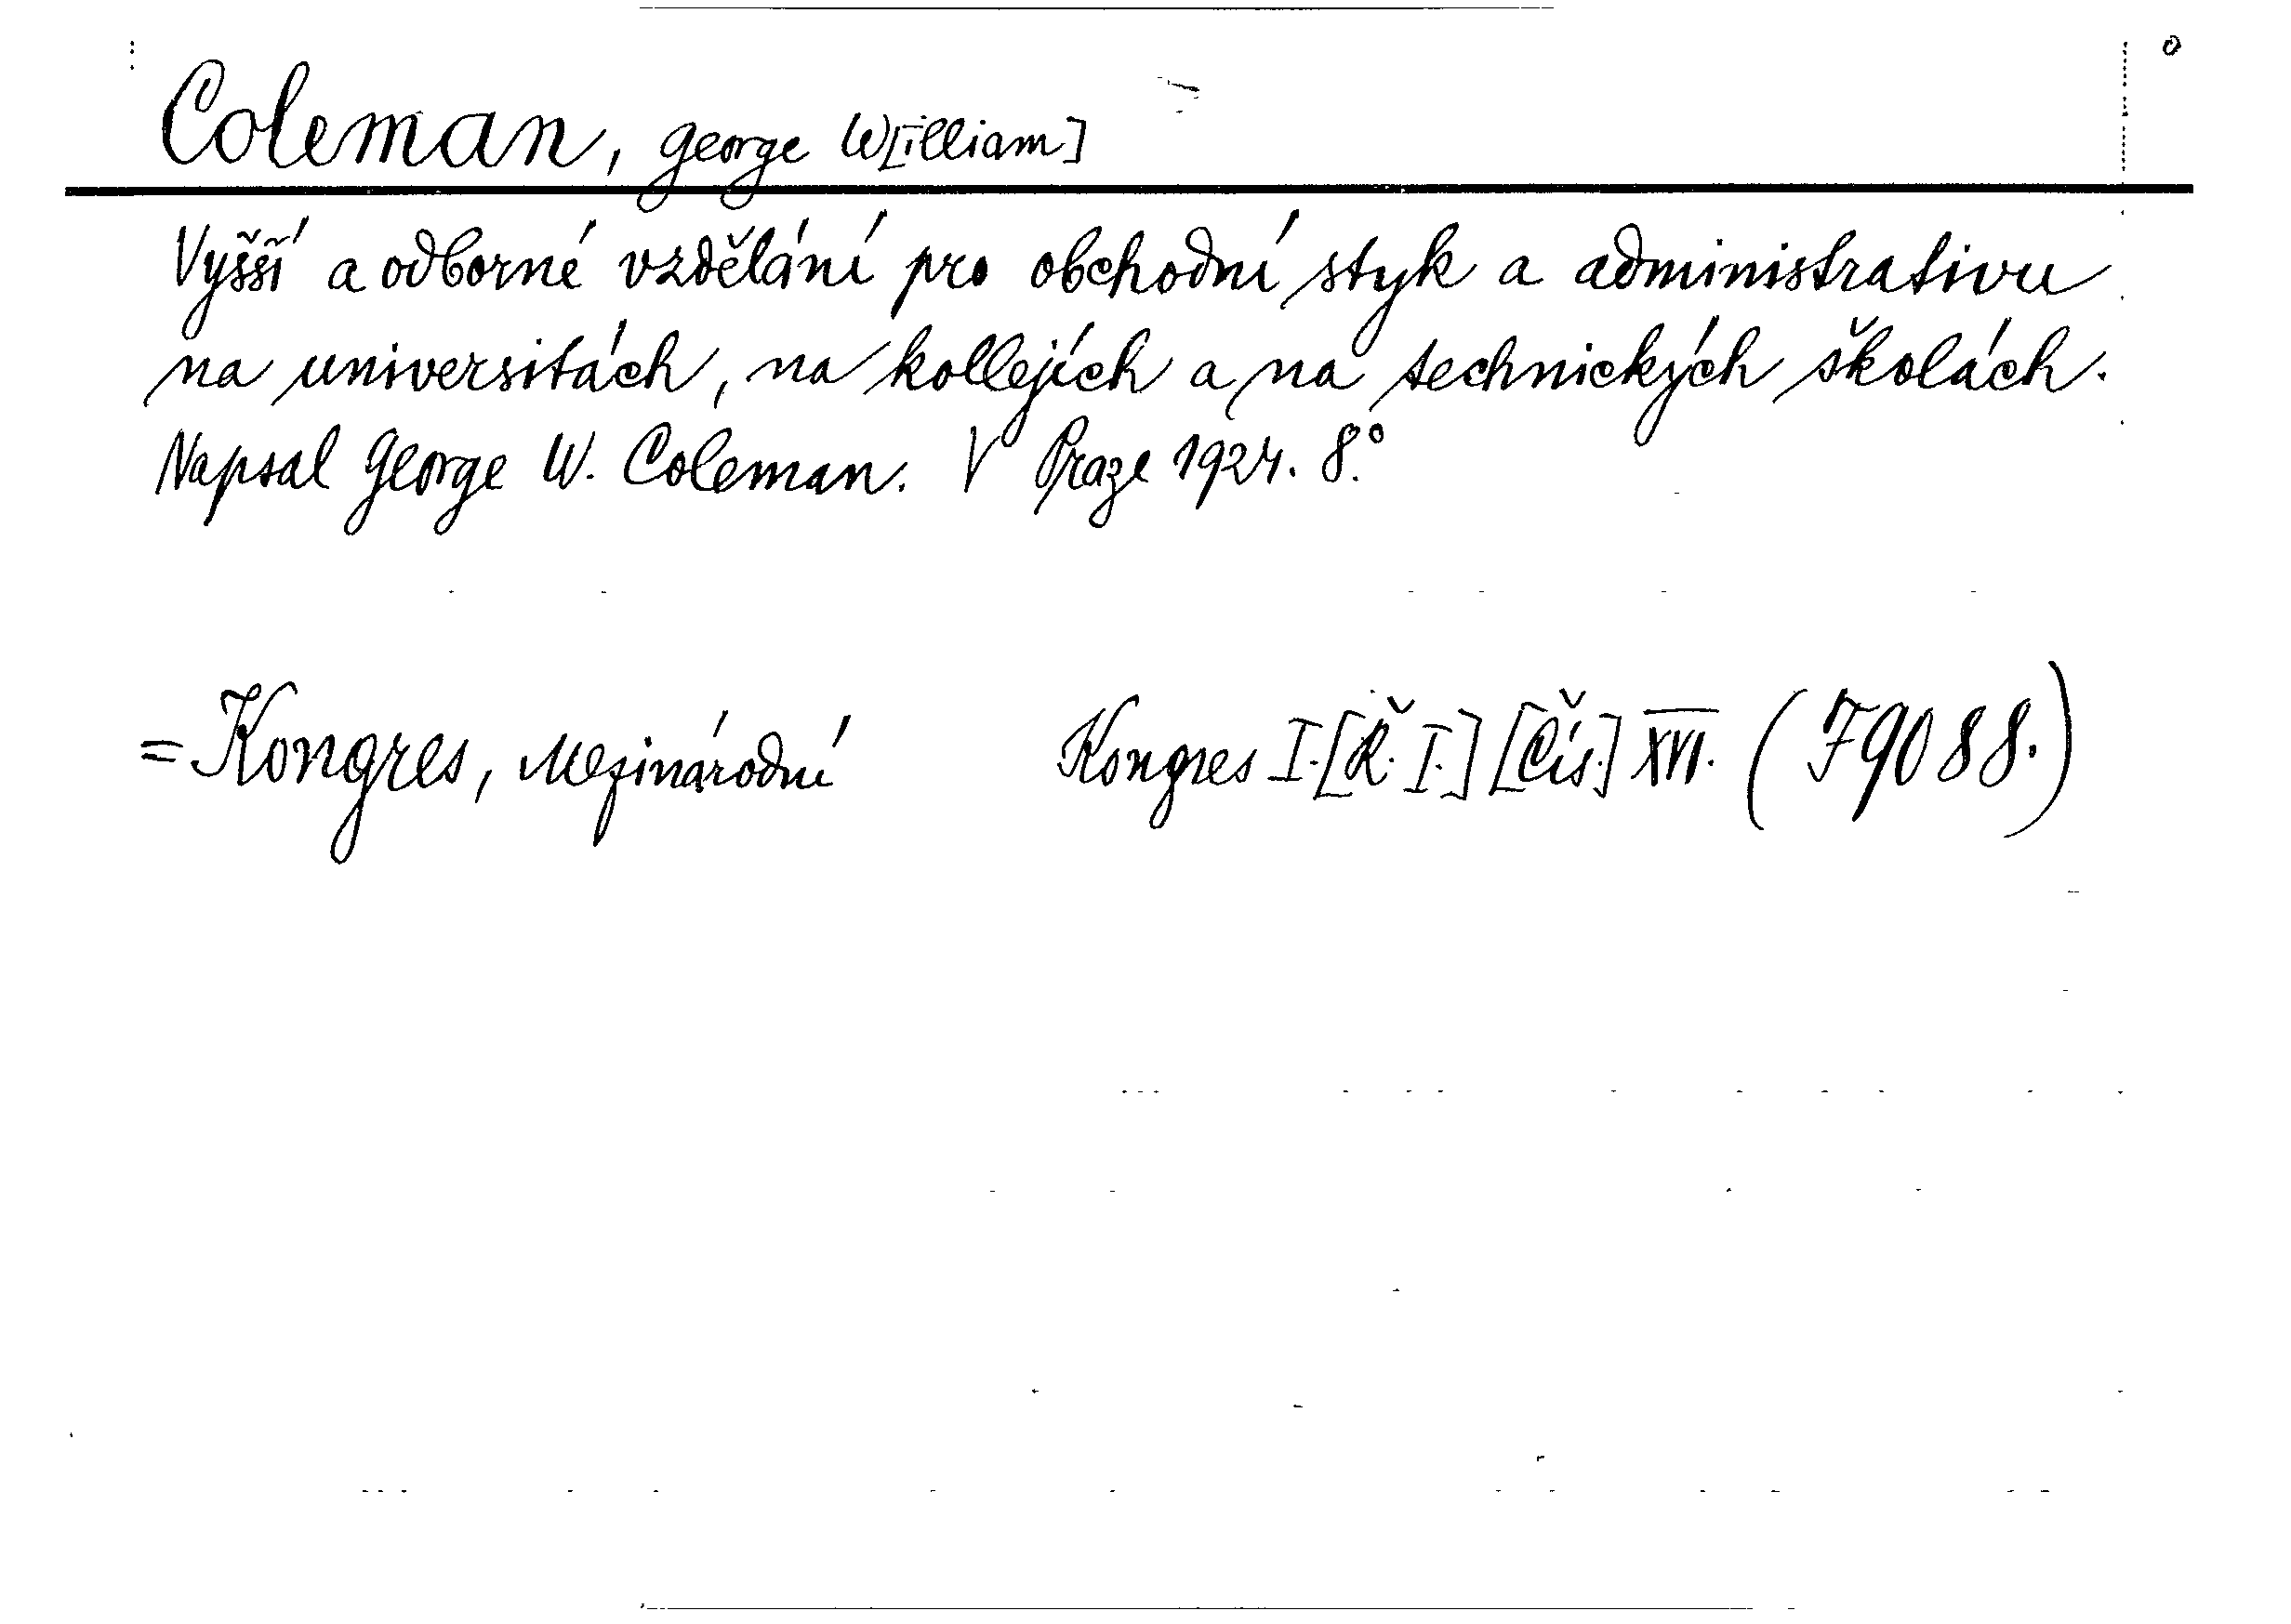 Coleman, George W[illiam]
Vyšší a odborné vzdělání pro obchodní styk a administrativu
na universitách, na kollejích a na technických školách.
Napsal George W. Coleman. V Praze 1924. 8.°
= Kongres, Mezinárodní Kongres I.[Ř. I.] [Čís.] XVI. (79088.)